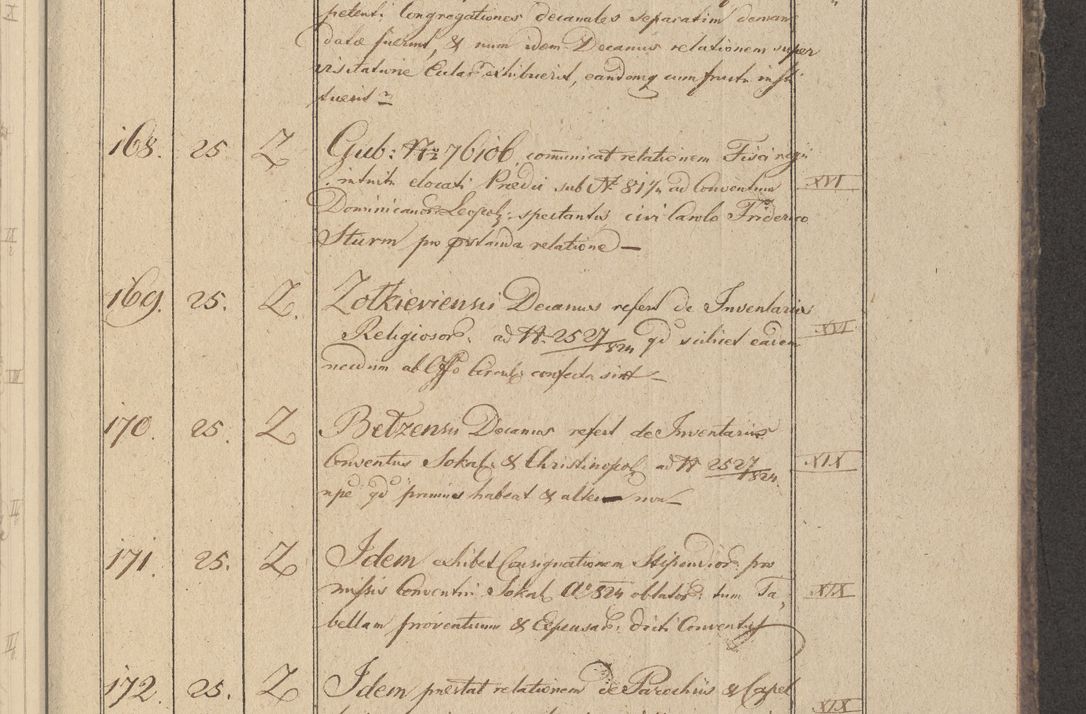 petenti Congregationes decanales separatim deman
datæ fuerint, & num idem Decanus relationem super
visitatione exhibuerit, eandemq cum fructu insti
tuerit
168. 25 Z Gub: N 76106, com̄unicat relationem Fisci regii
intuitu elocati Prædii sub N. 81/4 ad Conventum XVI
Dominicanor Leopol: spectantis civi Carolo Friderico
Sturm pro præstanda relatione —
169. 25. Z. Zolkieviensis Decanus refert de Inventariis
Religiosor. ad N. 2527/824 qd scilicet eadem XVI
necdum ab Offo Circul: confecta sint —
170. 25. Z Betzensis Decanus refert de Inventariis
Conventus Sokal. & Christinopol ad N 2527/824 XIX
npe qd primus habeat & alter non —
171. 25. Z Idem exhibet Consignationem Stipendior. pro
missis Conventui Sokal Ao 824 oblator: tum Ta XIX
bellam proventuum & Expensar: dicti Conventus
172. 25. Z Idem præstat relationem de Parochiis & Capel
XIX